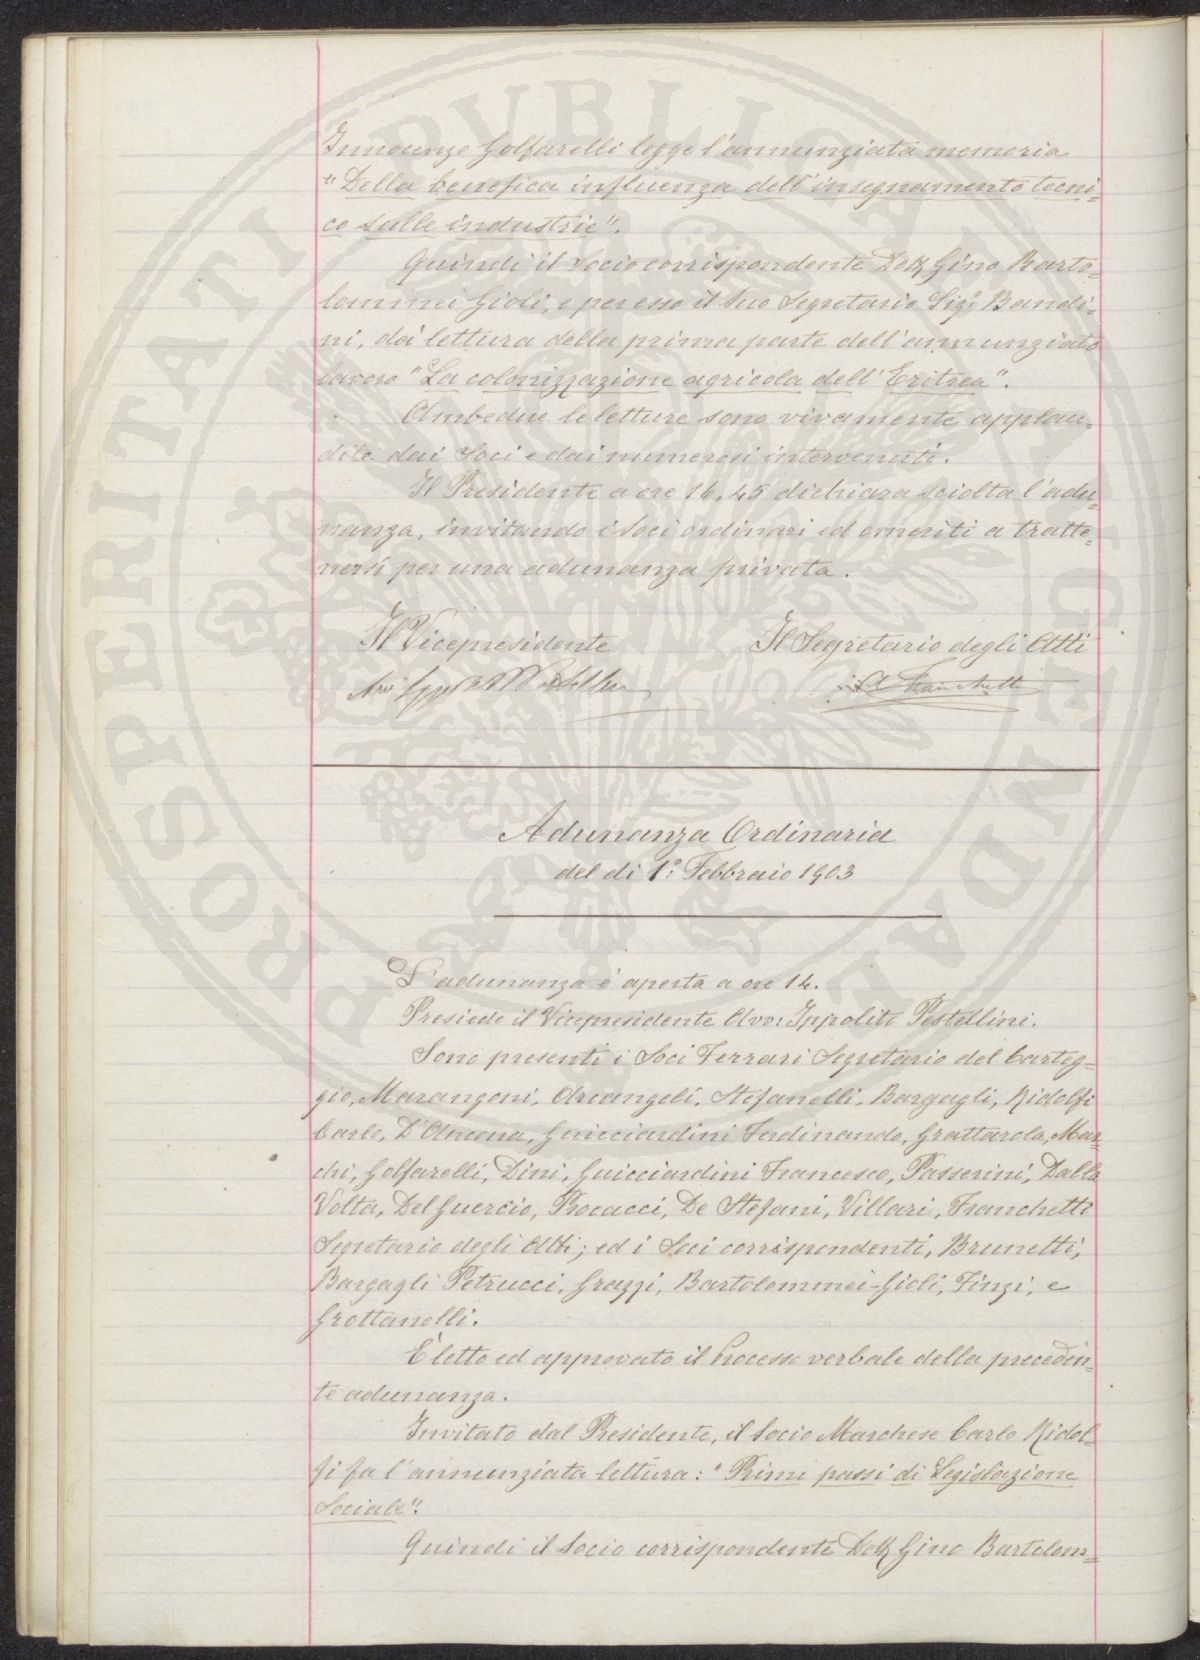 Innocenzo Golfarelli legge l'annunziata memoria
"Della benefica influenza dell'insegnamento tecni=
co sulle industrie".
Quindi il Socio corrispondente Dott Gino Barto=
lommei Gioli, e per esso il suo Segretario Sigr Bandi=
ni, dà lettura della prima parte dell'annunziato
lavoro "La colonizzazione agricola dell'Eritrea".
Ambedue le letture sono vivamente applau=
dite dai Soci e dai numerosi intervenuti.
Il Presidente a ore 16,45 dichiara sciolta l'adu=
nanza, invitando i Soci ordinari ed emeriti a tratte=
nersi per una adunanza privata.
Il Vicepresidente Il Segretario degli Atti
Franchetti
Adunanza Ordinaria
del dì 1°: Febbraio 1903
L'adunanza è aperta a ore 14.
Presiede il Vicepresidente Avv: Ippolito Pestellini.
Sono presenti i Soci Ferrari Segretario del Carteg=
gio, Marangoni, Arcangeli, Stefanelli, Bargagli, Ridolfi
Carlo, D'Ancona, Guicciardini Ferdinando, Grattarola, Mar=
chi, Golfarelli, Dini, Guicciardini Francesco, Passerini, Dalla
Volta, Del Guercio, Procacci, De Stefani, Villari, Franchetti
Segretario degli Atti; ed i Soci corrispondenti, Brunetti,
Bargagli Petrucci, Grazzi, Bartolommei-Gioli, Finzi, e
Grottanelli.
È letto ed approvato il Processo verbale della preceden=
te adunanza.
Invitato dal Presidente, il Socio Marchese Carlo Ridol=
fi fa l'annunziata lettura: "Primi passi di Legislazione
Sociale".
Quindi il Socio corrispondente Dott Gino Bartolom=
PROSPERITATI PVBLICAE AVGENDAE